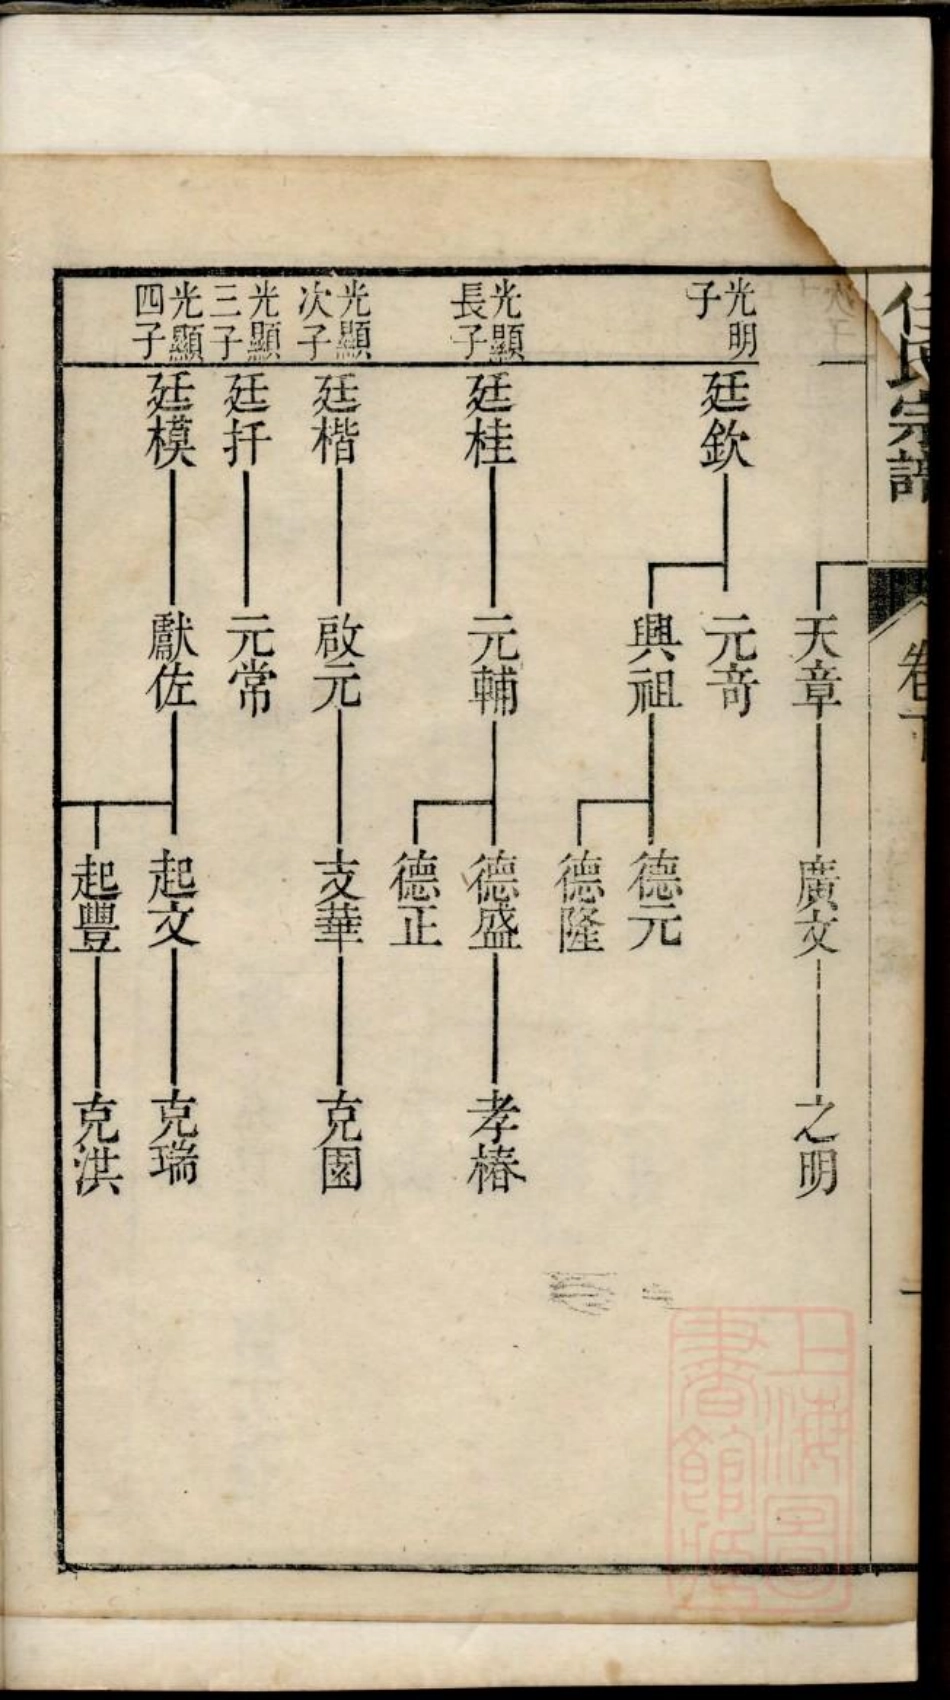 任氏宗譜
卷下
天章
廣文
之明
光明
子
廷欽
元奇
興祖
德元
德隆
光顯
長子
廷桂
元輔
德盛
德正
孝椿
光顯
次子
廷楷
啟元
支華
克園
光顯
三子
廷扦
元常
光顯
四子
廷模
獻佐
起文
克瑞
起豐
克洪
上海圖
書館藏